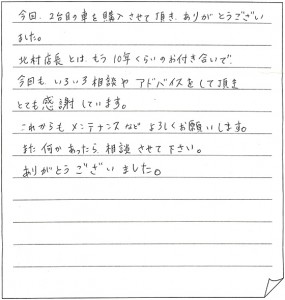 今回、2台目の車を購入させて頂き、ありがとうござい
ました。
北村店長とは、もう10年くらいのお付き合いで、
今回も、いろいろ相談やアドバイスをして頂き
とても感謝しています。
これからも メンテナンスなど よろしくお願いします。
また何かあったら、相談させて下さい。
ありがとうございました。